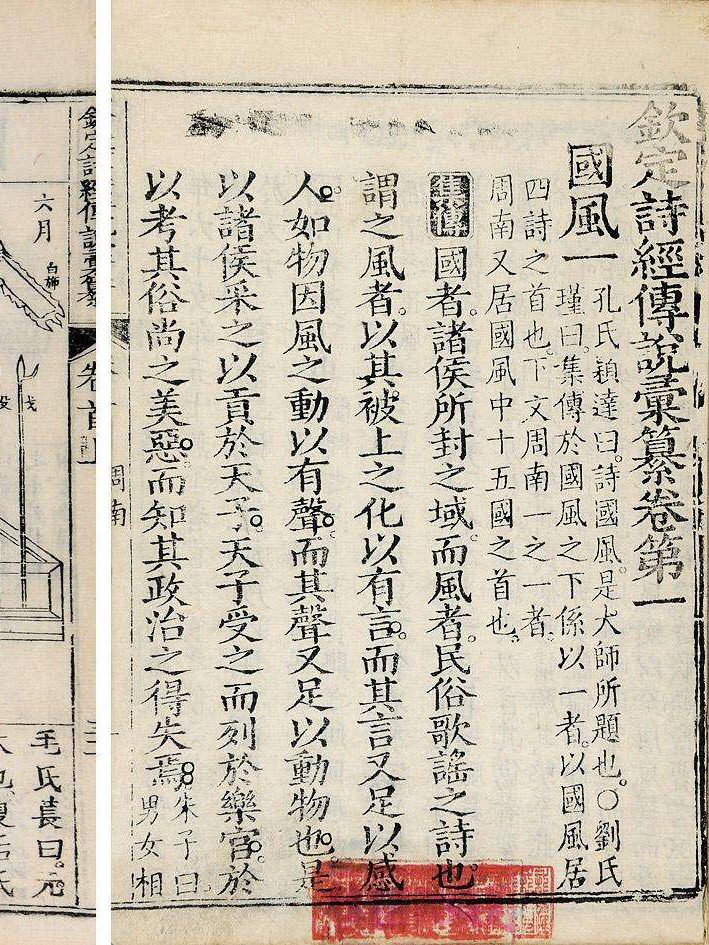 欽定詩經傳說彙纂卷第一
國風一
孔氏穎達曰。詩國風。是大師所題也。〇劉氏
瑾曰。集傳於國風之下係以一者。以國風居
四詩之首也。下文周南一之一者。
周南又居國風中十五國之首也。
集傳 國者。諸侯所封之域。而風者。民俗歌謠之詩也。
謂之風者。以其被上之化以有言。而其言又足以感
人。如物因風之動以有聲。而其聲又足以動物也。是
以諸侯采之以貢於天子。天子受之而列於樂官。於
以考其俗尚之美惡。而知其政治之得失焉。
朱子曰。
男女相
周南
欽定詩經傳說彙纂
卷首上
六月
白旆
毛氏萇曰。元